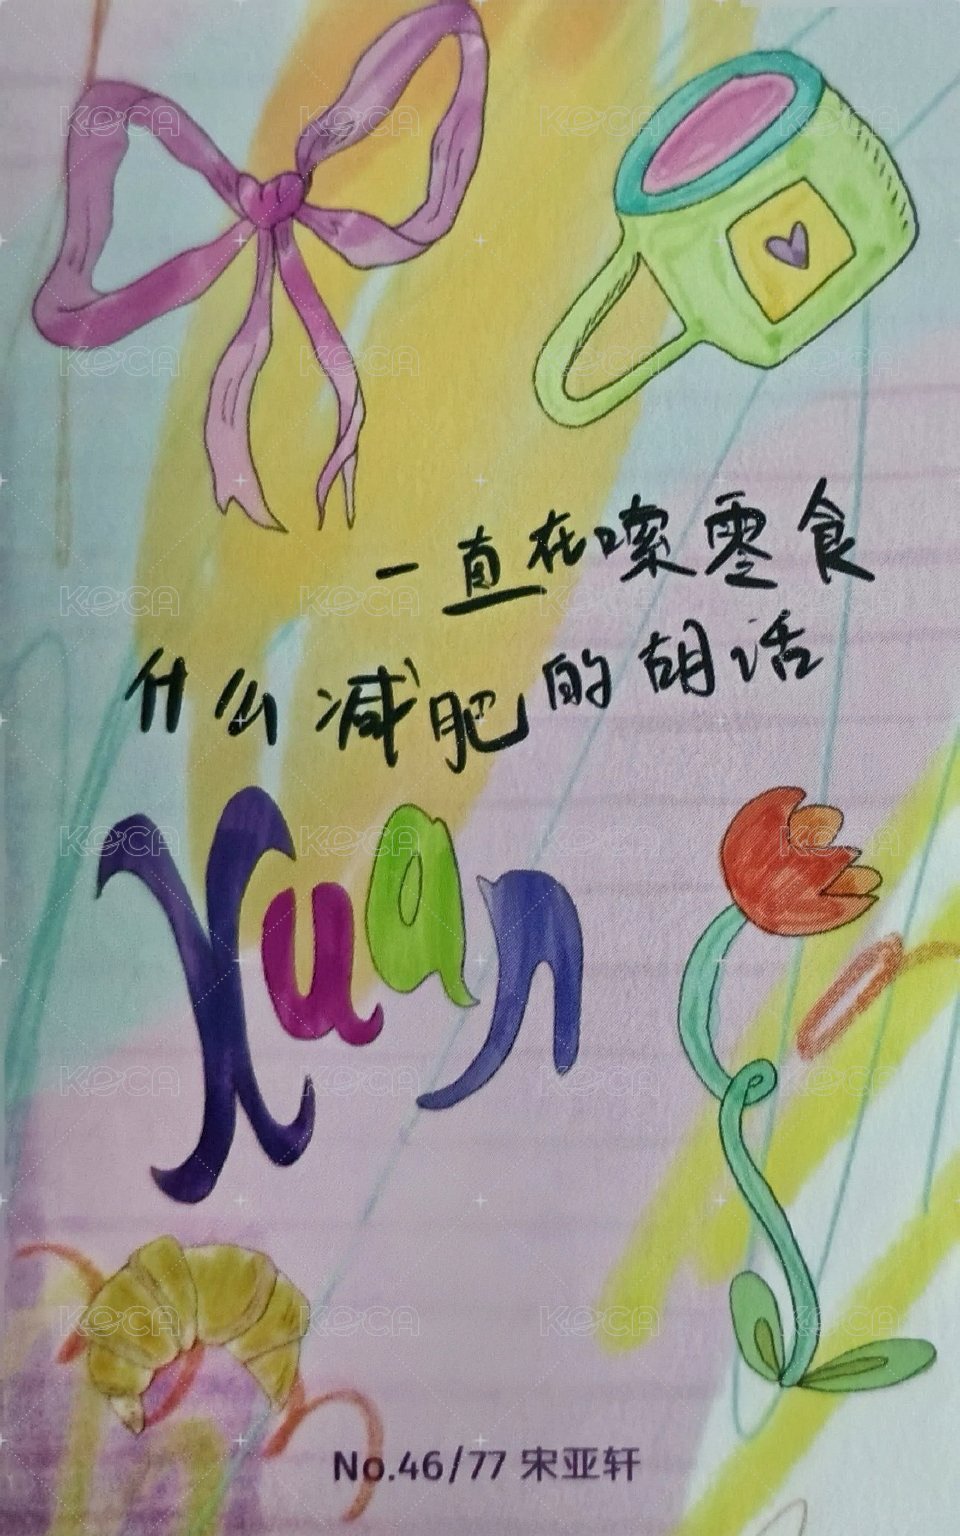 一直在嗦零食
什么减肥的胡话
Xuan
No.46/77 宋亚轩
KOCA